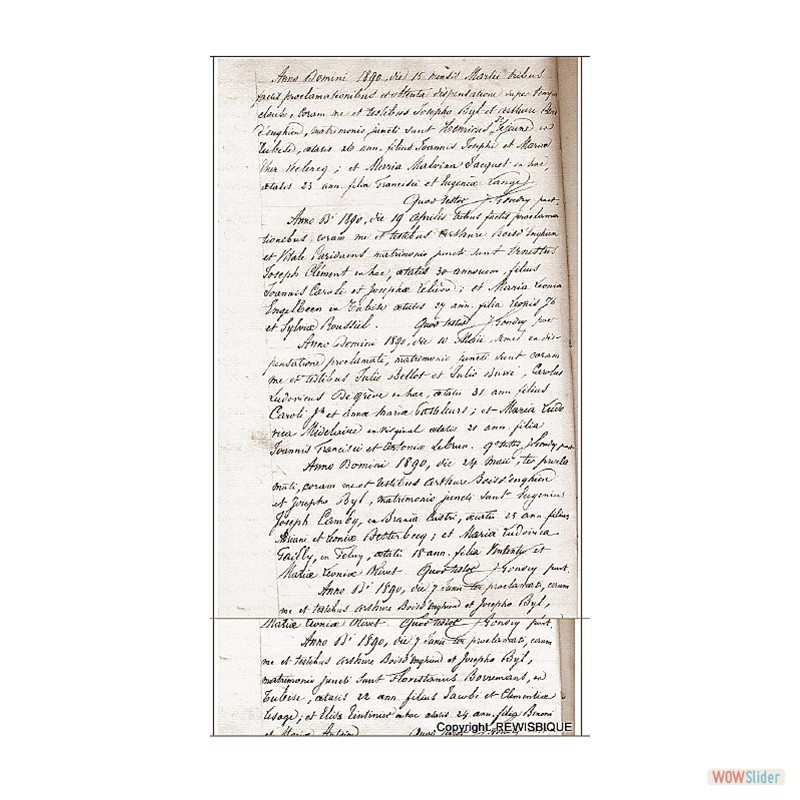 Anno Domini 1890, die 15 mensis Martii tribus
factis proclamationibus et obtenta dispensatione super tempus
clausum, coram me et testibus Josepho Byl et Arthuro Bois
d'enghien, matrimonio juncti sunt Henricus Lejeune ex
Tubise, aetatis 26 ann. filius Joannis Josephi et Mariae
Leclercq ; et Maria Malvina Jacquet ex hac,
aetatis 23 ann. filia Francisci et Eugenia Lange
Quod testor J. Gondry past.
Anno Di 1890, die 19 aprilis tribus factis proclama
tionibus coram me et testibus Arthure Boisd'enghien
et Vitale Paridaens matrimonio juncti sunt Ernestus
Joseph Clément ex hac, aetatis 30 annorum, filius
Joannis Caroli et Josephae ; et Maria Leonia
Engelbeen ex Tubise aetatis 27 ann. filia Leonis
et Sylviae Roussiel. Quod testor J. Gondry past
Anno Domini 1890, die 10 Maii semel ex dis-
pensatione proclamati, matrimonio juncti sunt coram
me et testibus Julio Bellot et Julio , Carolus
Ludovicus De Grève ex hac, aetatis 31 ann filius
Caroli et Anna Maria ; et Maria Ludo
vica ex Virginal aetatis 21 ann. filia
Joannis Francisci et Antonia Lebrun. qd testor J. Gondry past
Anno Domini 1890, die 24 maii, ter procla
mati, coram me et testibus Arthure Boisd'enghien
et Josepho Byl, matrimonio juncti sunt Eugenius
Joseph Camby, ex Brania Castri, aetatis 25 ann. filius
et Leonia Betterbecq ; et Maria Ludovica
Tailly, ex Feluy, aetatis 18 ann. filia Vincentii et
Mariae Leoniae Olivet. Quod testor J. Gondry past.
Anno Di 1890, die 7 Junii ter proclamati, coram
me et testibus Arthure Boisd'enghien et Josepho Byl,
Mariae Leoniae Olivet. Quod testor J. Gondry past.
Anno Di 1890, die 7 Junii ter proclamati, coram
me et testibus Arthure Boisd'enghien et Josepho Byl,
matrimonio juncti sunt Floristanus Borremans, ex
Tubise, aetatis 22 ann. filius Jacobi et Clementiae
Lesage ; et Elisa Tintinier ex hac aetatis 24 ann. filia
et Maria
Copyright REWISBIQUE
WOWSlider